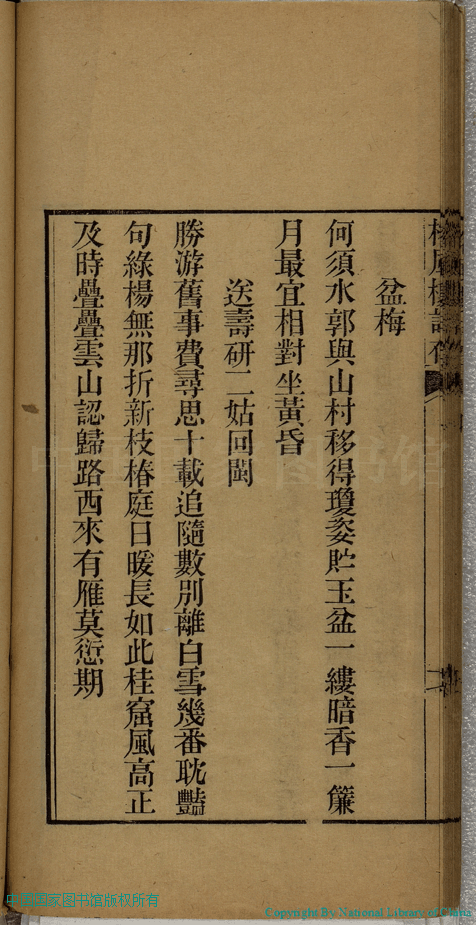 盆梅
何須水郭與山村移得瓊姿貯玉盆一縷暗香一簾
月最宜相對坐黃昏
送壽研二姑回閩
勝游舊事費尋思十載追隨數別離白雪幾番耽豔
句綠楊無那折新枝椿庭日暖長如此桂窟風高正
及時疊疊雲山認歸路西來有雁莫愆期
中国国家图书馆版权所有
Copyright By National Library of China